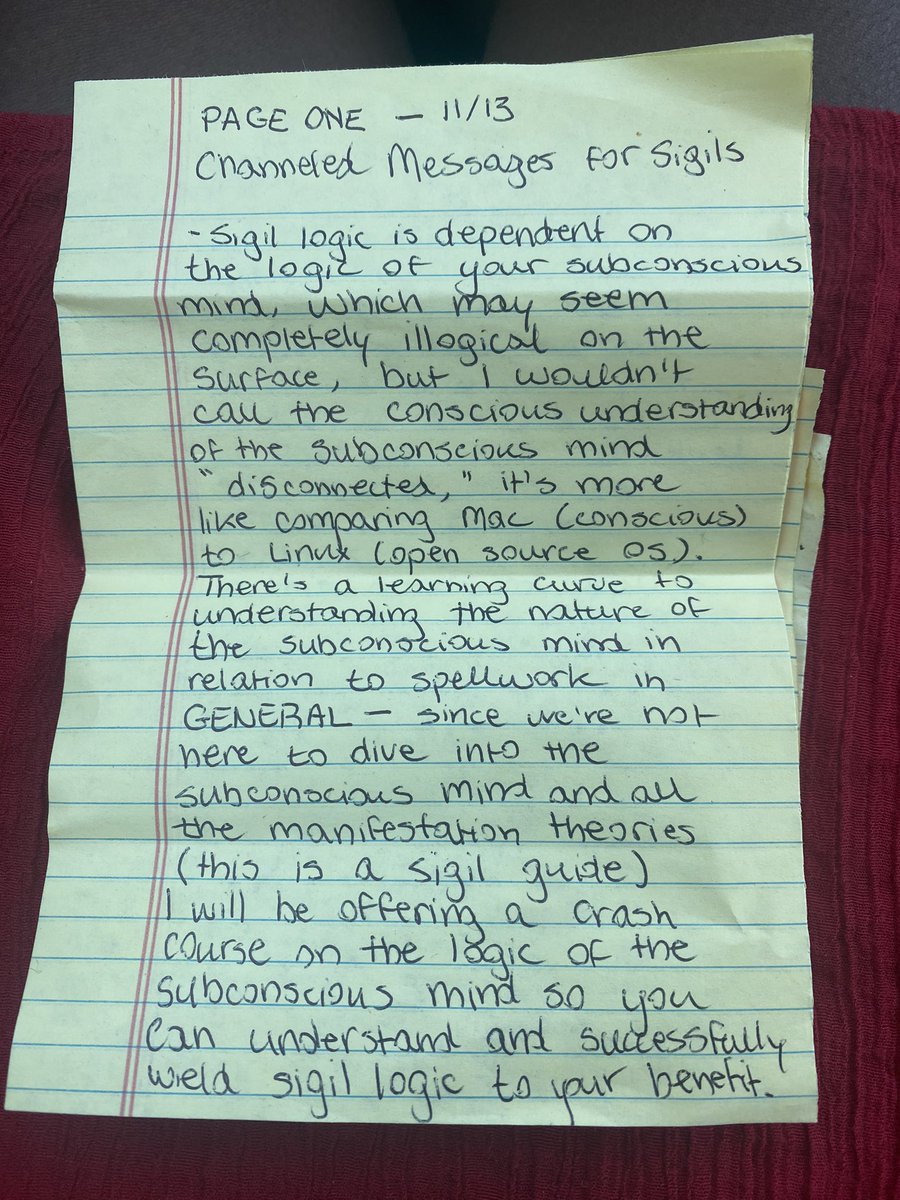 PAGE ONE — 11/13
Channeled Messages for Sigils
- Sigil logic is dependent on
the logic of your subconscious
mind, which may seem
completely illogical on the
surface, but I wouldn't
call the conscious understanding
of the subconscious mind
"disconnected," it's more
like comparing Mac (conscious)
to Linux (open source OS).
There's a learning curve to
understanding the nature of
the subconscious mind in
relation to spellwork in
GENERAL — since we're not
here to dive into the
subconscious mind and all
the manifestation theories
(this is a sigil guide)
I will be offering a crash
course on the logic of the
subconscious mind so you
can understand and successfully
wield sigil logic to your benefit.